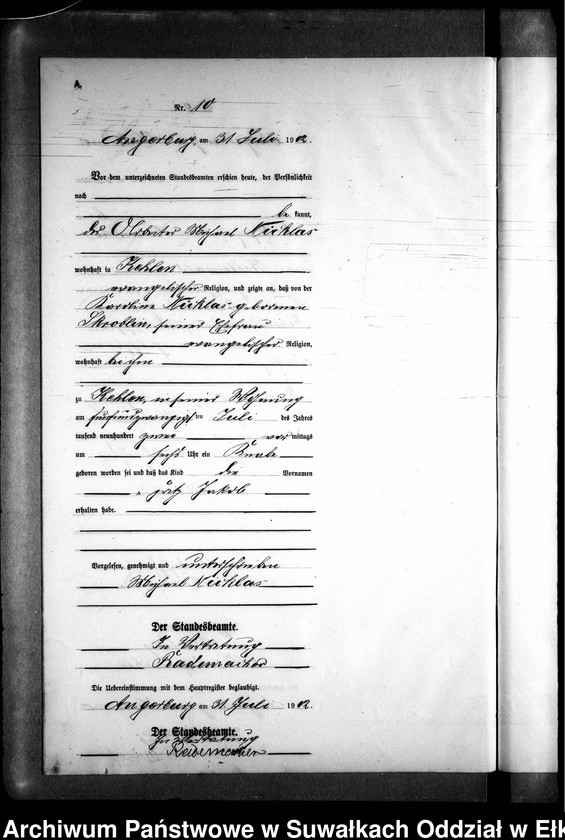 A.
Nr. 10
Angerburg am 31 Juli 1902.
Vor dem unterzeichneten Standesbeamten erschien heute, der Persönlichkeit
nach
be kannt,
der Arbeiter Michael Nicklas
wohnhaft in Kehlen
evangelischer Religion, und zeigte an, daß von der
Karoline Nicklas geborenen
Skroblin, seiner Ehefrau
evangelischer Religion,
wohnhaft bei ihm
zu Kehlen, in seiner Wohnung
am fünfundzwanzigsten Juli des Jahres
tausend neunhundert zwei vor mittags
um sechs Uhr ein Knabe
geboren worden sei und daß das Kind die Vornamen
Fritz Jakob
erhalten habe.
Vorgelesen, genehmigt und unterschrieben
Michael Nicklas
Der Standesbeamte.
In Vertretung
Rademacher
Die Uebereinstimmung mit dem Hauptregister beglaubigt.
Angerburg am 31. Juli 1902.
Der Standesbeamte.
In Vertretung
Rademacher
Archiwum Państwowe w Suwałkach Oddział w Ełk